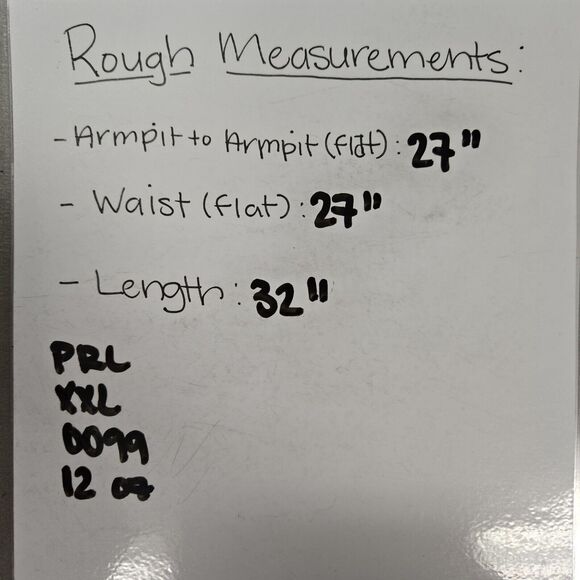 Rough Measurements:
- Armpit to Armpit (flat): 27"
- Waist (flat): 27"
- Length: 32"
PRL
XXL
0099
12 oz